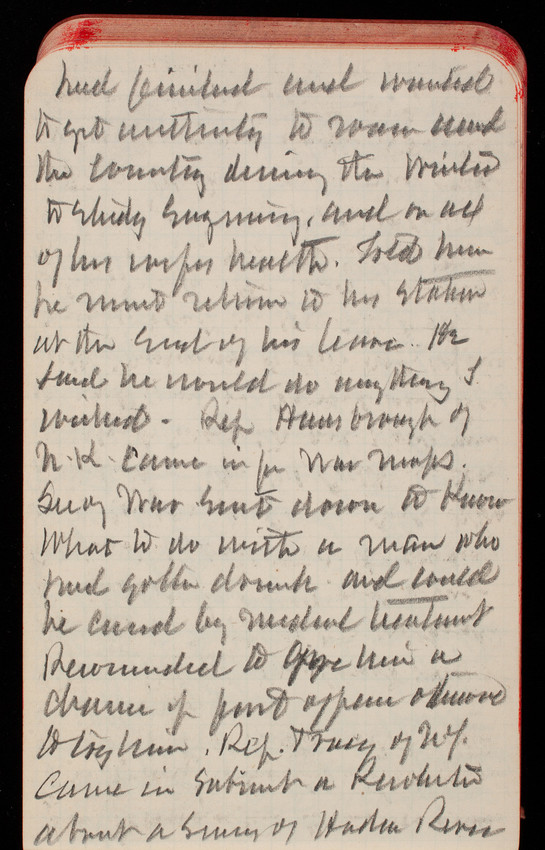 had finished and wanted
to get authority to roam around
the Country during the Winter
to study Engineering, and on acct
of his wifes health. Told him
he must return to his Station
at the End of his leave. He
said he would do anything I
wished - Rep Hansbrough of
N.K. came in for War maps.
Secy War Sent down to Know
What to do with a man who
had gotten drunk and could
be cured by medical treatment
Recommended to give him a
chance if first offence otherwise
to try him. Rep. Tracey of NY.
Came in Submit a Resolution
about a Survey of Hudson River